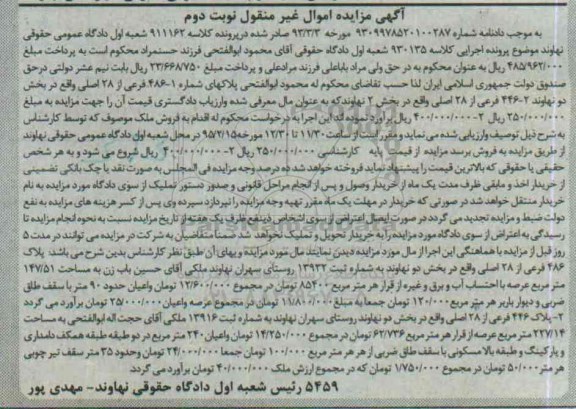 آگهی مزایده اموال غیر منقول نوبت دوم
به موجب دادنامه شماره ۹۳۰۹۹۷۸۵۲۰۱۰۰۲۸۷ مورخه ۹۳/۳/۳ صادر شده درپرونده کلاسه ۹۱۱۱۶۲ شعبه اول دادگاه عمومی حقوقی
نهاوند موضوع پرونده اجرایی کلاسه ۹۳۰۱۳۵ شعبه اول دادگاه حقوقی آقای محمود ابوالفتحی فرزند حسنمراد محکوم است به پرداخت مبلغ
۴۸۵/۹۶۲/۰۰۰ ریال به عنوان محکوم به در حق ولی مراد باباعلی فرزند مرادعلی و پرداخت مبلغ ۲۳/۶۶۸/۷۵۰ ریال بابت نیم عشر دولتی درحق
صندوق دولت جمهوری اسلامی ایران لذا حسب تقاضای محکوم له محمود ابوالفتحی پلاکهای شماره ۱-۴۸۶ فرعی از ۲۸ اصلی واقع در بخش
دو نهاوند ۲-۴۴۶ فرعی از ۲۸ اصلی واقع در بخش ۲ نهاوند که به عنوان مال معرفی شده وارزیاب دادگستری قیمت آن را جهت مزایده به مبلغ
۲۵۰/۰۰۰/۰۰۰ ریال ۲-۴۰۰/۰۰۰/۰۰۰ ریال برآورد نموده اند این اجرا به درخواست محکوم له اقدام به فروش ملک موصوف که توسط کارشناس
به شرح ذیل توصیف وارزیابی شده می نماید و مقرر است از ساعت ۱۱/۳۰ تا ۱۲/۳۰ مورخ ۹۵/۲/۱۵ در محل شعبه اول دادگاه عمومی حقوقی نهاوند
از طریق مزایده به فروش برسد مزایده از قیمت پایه کارشناسی ۲۵۰/۰۰۰/۰۰۰ ریال ۲-۴۰۰/۰۰۰/۰۰۰ ریال شروع می شود و به هر شخص
حقیقی یا حقوقی که بالاترین قیمت را پیشنهاد نماید فروخته خواهد شد ده درصد وجه مزایده فی المجلس به صورت نقد یا چک بانکی تضمینی
از خریدار اخذ و مابقی ظرف مدت یک ماه از خریدار وصول و پس از انجام مراحل قانونی و صدور دستور تملیک از سوی دادگاه مورد مزایده به نام
خریدار منتقل خواهد شد در صورتی که خریدار در مهلت یک ماه مقرر تهیه وجه مزایده را نپردازد سپرده وی پس از کسر هزینه های مزایده به نفع
دولت ضبط و مزایده تجدید می گردد در صورت ایصال اعتراض از سوی اشخاص ذینفع ظرف یک هفته از تاریخ مزایده نسبت به نحوه انجام مزایده تا
رسیدگی به اعتراض از سوی دادگاه مورد مزایده را به خریدار تحویل و تملیک نخواهد شد ضمنا متقاضیان به شرکت در مزایده می توانند در مدت ۵
روز قبل از مزایده با هماهنگی این اجرا از مال مورد مزایده دیدن نمایند مال مورد مزایده وبهای آن طبق نظر کارشناس بدین شرح می باشد: پلاک
۴۸۶ فرعی از ۲۸ اصلی واقع در بخش دو نهاوند به شماره ثبت ۱۳۹۲۲ روستای سهران نهاوند ملکی آقای حسین باب زن به مساحت ۱۴۷/۵۱
متر مربع عرصه با احتساب آب و برق و غیره از قرار هر متر مربع ۸۵۴۰۰ تومان در مجموع ۱۲/۶۰۰/۰۰۰ تومان واعیان حدود ۹۰ متر با سقف طاق
ضربی و دیوار باربر هر متر مربع ۱۲۰/۰۰۰ تومان جمعا به مبلغ ۱۱/۸۰۰/۰۰۰ تومان در مجموع عرصه واعیان ۲۵/۰۰۰/۰۰۰ تومان برآورد می گردد
۲- پلاک ۴۴۶ فرعی از ۲۸ اصلی واقع در بخش دو نهاوند روستای سهران نهاوند به شماره ثبت ۱۳۹۱۶ ملکی آقای حجت اله ابوالفتحی به مساحت
۲۲۷/۱۴ متر مربع عرصه از قرار هر متر مربع ۶۲/۷۳۶ تومان در مجموع ۱۴/۲۵۰/۰۰۰ تومان واعیان ۲۴۰ متر مربع در دو طبقه طبقه همکف دامداری
و پارکینگ و طبقه بالا مسکونی با سقف طاق ضربی از هر هر متر مربع ۱۰۰/۰۰۰ تومان جمعا ۲۴/۰۰۰/۰۰۰ تومان وحدود ۳۵ متر سقف تیر چوبی
هر متر ۵۰/۰۰۰ تومان در مجموع ۱/۷۵۰/۰۰۰ تومان که در مجموع ارزش ملک ۴۰/۰۰۰/۰۰۰ تومان برآورد می گردد.
۵۴۵۹ رئیس شعبه اول دادگاه حقوقی نهاوند- مهدی پور